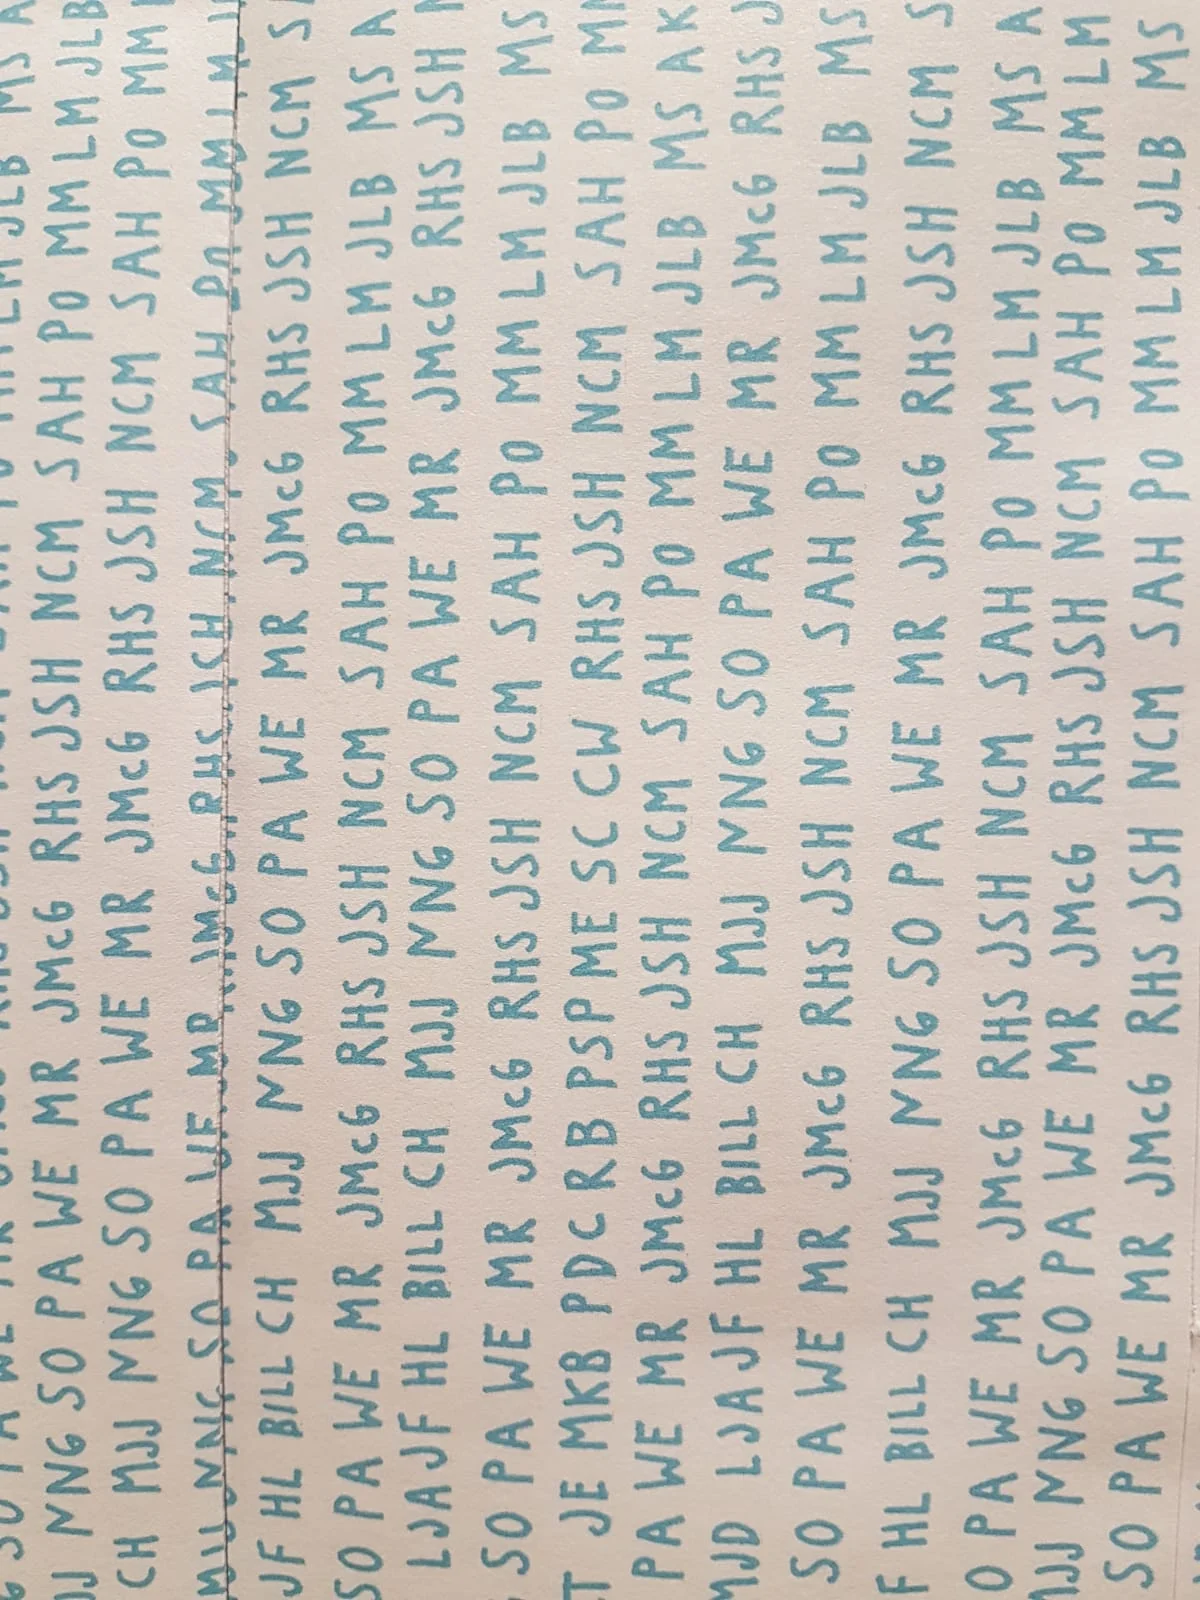 NNG SO PA WE MR JMcG RHS JSH NCM SAH PO MM LM JLB
CH MJJ NNG SO PA WE MR JMcG RHS JSH NCM SAH PO MM
MJJ NNG SO PA WE MR JMcG RHS JSH NCM SAH PO MM
JF HL BILL CH MJJ NNG SO PA WE MR JMcG RHS JSH NCM S
SO PA WE MR JMcG RHS JSH NCM SAH PO MM LM JLB MS A
LJA JF HL BILL CH MJJ NNG SO PA WE MR JMcG RHS JSH
SO PA WE MR JMcG RHS JSH NCM SAH PO MM LM JLB MS
T JE MKB PDC RB PSP ME SC CW RHS JSH NCM SAH PO MM
PA WE MR JMcG RHS JSH NCM SAH PO MM LM JLB MS AK
MJD LJA JF HL BILL CH MJJ NNG SO PA WE MR JMcG RHS J
SO PA WE MR JMcG RHS JSH NCM SAH PO MM LM JLB MS
F HL BILL CH MJJ NNG SO PA WE MR JMcG RHS JSH NCM S
O PA WE MR JMcG RHS JSH NCM SAH PO MM LM JLB MS A
MJJ NNG SO PA WE MR JMcG RHS JSH NCM SAH PO MM LM
SO PA WE MR JMcG RHS JSH NCM SAH PO MM LM JLB MS